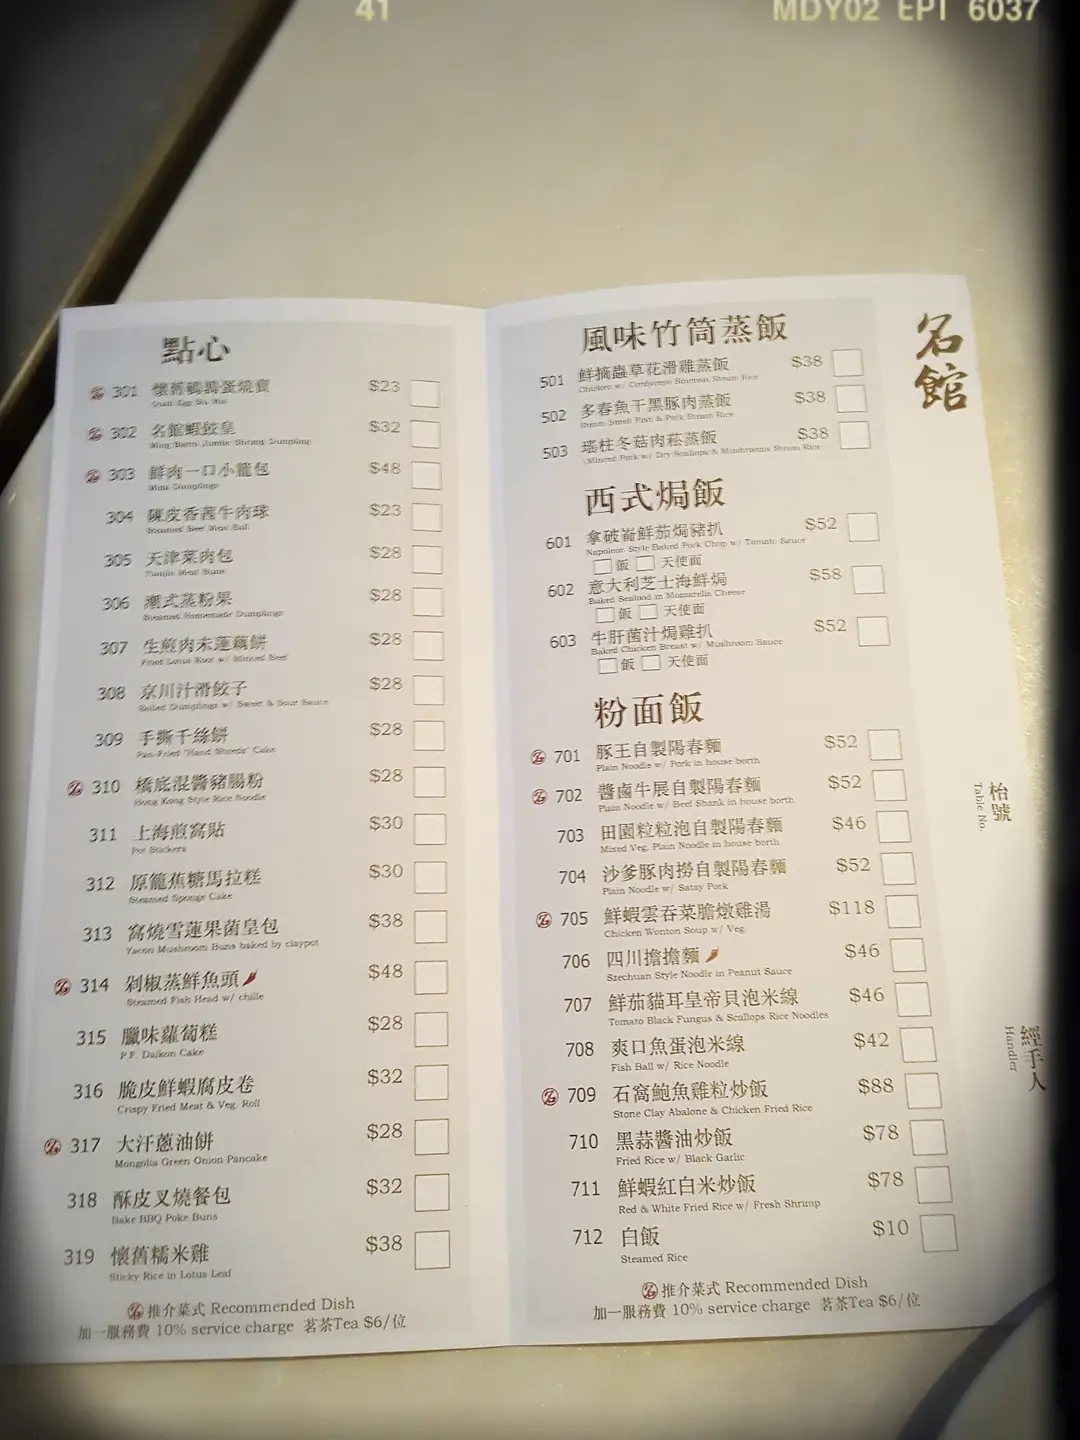 41
MDY02 EPI 6037
點心
301 懷舊鵪鶉蛋燒賣 $23
Quail Egg Siu Mai
302 名館蝦餃皇 $32
Ming Bistro Jumbo Shrimp Dumpling
303 鮮肉一口小籠包 $48
Mini Dumplings
304 陳皮香茜牛肉球 $23
Steamed Beef Meat Ball
305 天津菜肉包 $28
Tianjin Meat Buns
306 潮式蒸粉果 $28
Steamed Homemade Dumplings
307 生煎肉末蓮藕餅 $28
Fried Lotus Root w/ Minced Beef
308 京川汁滑餃子 $28
Boiled Dumplings w/ Sweet & Sour Sauce
309 手撕千絲餅 $28
Pan-Fried "Hand Shreds" Cake
310 橋底混醬豬腸粉 $28
Hong Kong Style Rice Noodle
311 上海煎窩貼 $30
Pot Stickers
312 原籠蕉糖馬拉糕 $30
Steamed Sponge Cake
313 窩燒雪蓮果菌皇包 $38
Yacon Mushroom Buns baked by claypot
314 剁椒蒸鮮魚頭 $48
Steamed Fish Head w/ chille
315 臘味蘿蔔糕 $28
P.F. Daikon Cake
316 脆皮鮮蝦腐皮卷 $32
Crispy Fried Meat & Veg. Roll
317 大汗蔥油餅 $28
Mongolia Green Onion Pancake
318 酥皮叉燒餐包 $32
Bake BBQ Poke Buns
319 懷舊糯米雞 $38
Sticky Rice in Lotus Leaf
推介菜式 Recommended Dish
加一服務費 10% service charge 茗茶Tea $6/位
風味竹筒蒸飯
501 鮮摘蟲草花滑雞蒸飯 $38
Chicken w/ Cordyceps Sinensis Steam Rice
502 多春魚干黑豚肉蒸飯 $38
Steam Smelt Fish & Pork Steam Rice
503 瑤柱冬菇肉菘蒸飯 $38
Minced Pork w/ Dry Scallops & Mushrooms Steam Rice
西式焗飯
601 拿破崙鮮茄焗豬扒 $52
Napoleon Style Baked Pork Chop w/ Tomato Sauce
飯 天使面
602 意大利芝士海鮮焗 $58
Baked Seafood in Mozzarella Cheese
飯 天使面
603 牛肝菌汁焗雞扒 $52
Baked Chicken Breast w/ Mushroom Sauce
飯 天使面
粉面飯
701 豚王自製陽春麵 $52
Plain Noodle w/ Pork in house borth
702 醬鹵牛展自製陽春麵 $52
Plain Noodle w/ Beef Shank in house borth
703 田園粒粒泡自製陽春麵 $46
Mixed Veg. Plain Noodle in house borth
704 沙爹豚肉撈自製陽春麵 $52
Plain Noodle w/ Satay Pork
705 鮮蝦雲吞菜膽燉雞湯 $118
Chicken Wonton Soup w/ Veg.
706 四川擔擔麵 $46
Szechuan Style Noodle in Peanut Sauce
707 鮮茄貓耳皇帝貝泡米線 $46
Tomato Black Fungus & Scallops Rice Noodles
708 爽口魚蛋泡米線 $42
Fish Ball w/ Rice Noodle
709 石窩鮑魚雞粒炒飯 $88
Stone Clay Abalone & Chicken Fried Rice
710 黑蒜醬油炒飯 $78
Fried Rice w/ Black Garlic
711 鮮蝦紅白米炒飯 $78
Red & White Fried Rice w/ Fresh Shrimp
712 白飯 $10
Steamed Rice
推介菜式 Recommended Dish
加一服務費 10% service charge 茗茶Tea $6/位
名館
枱號
Table No.
經手人
Handler